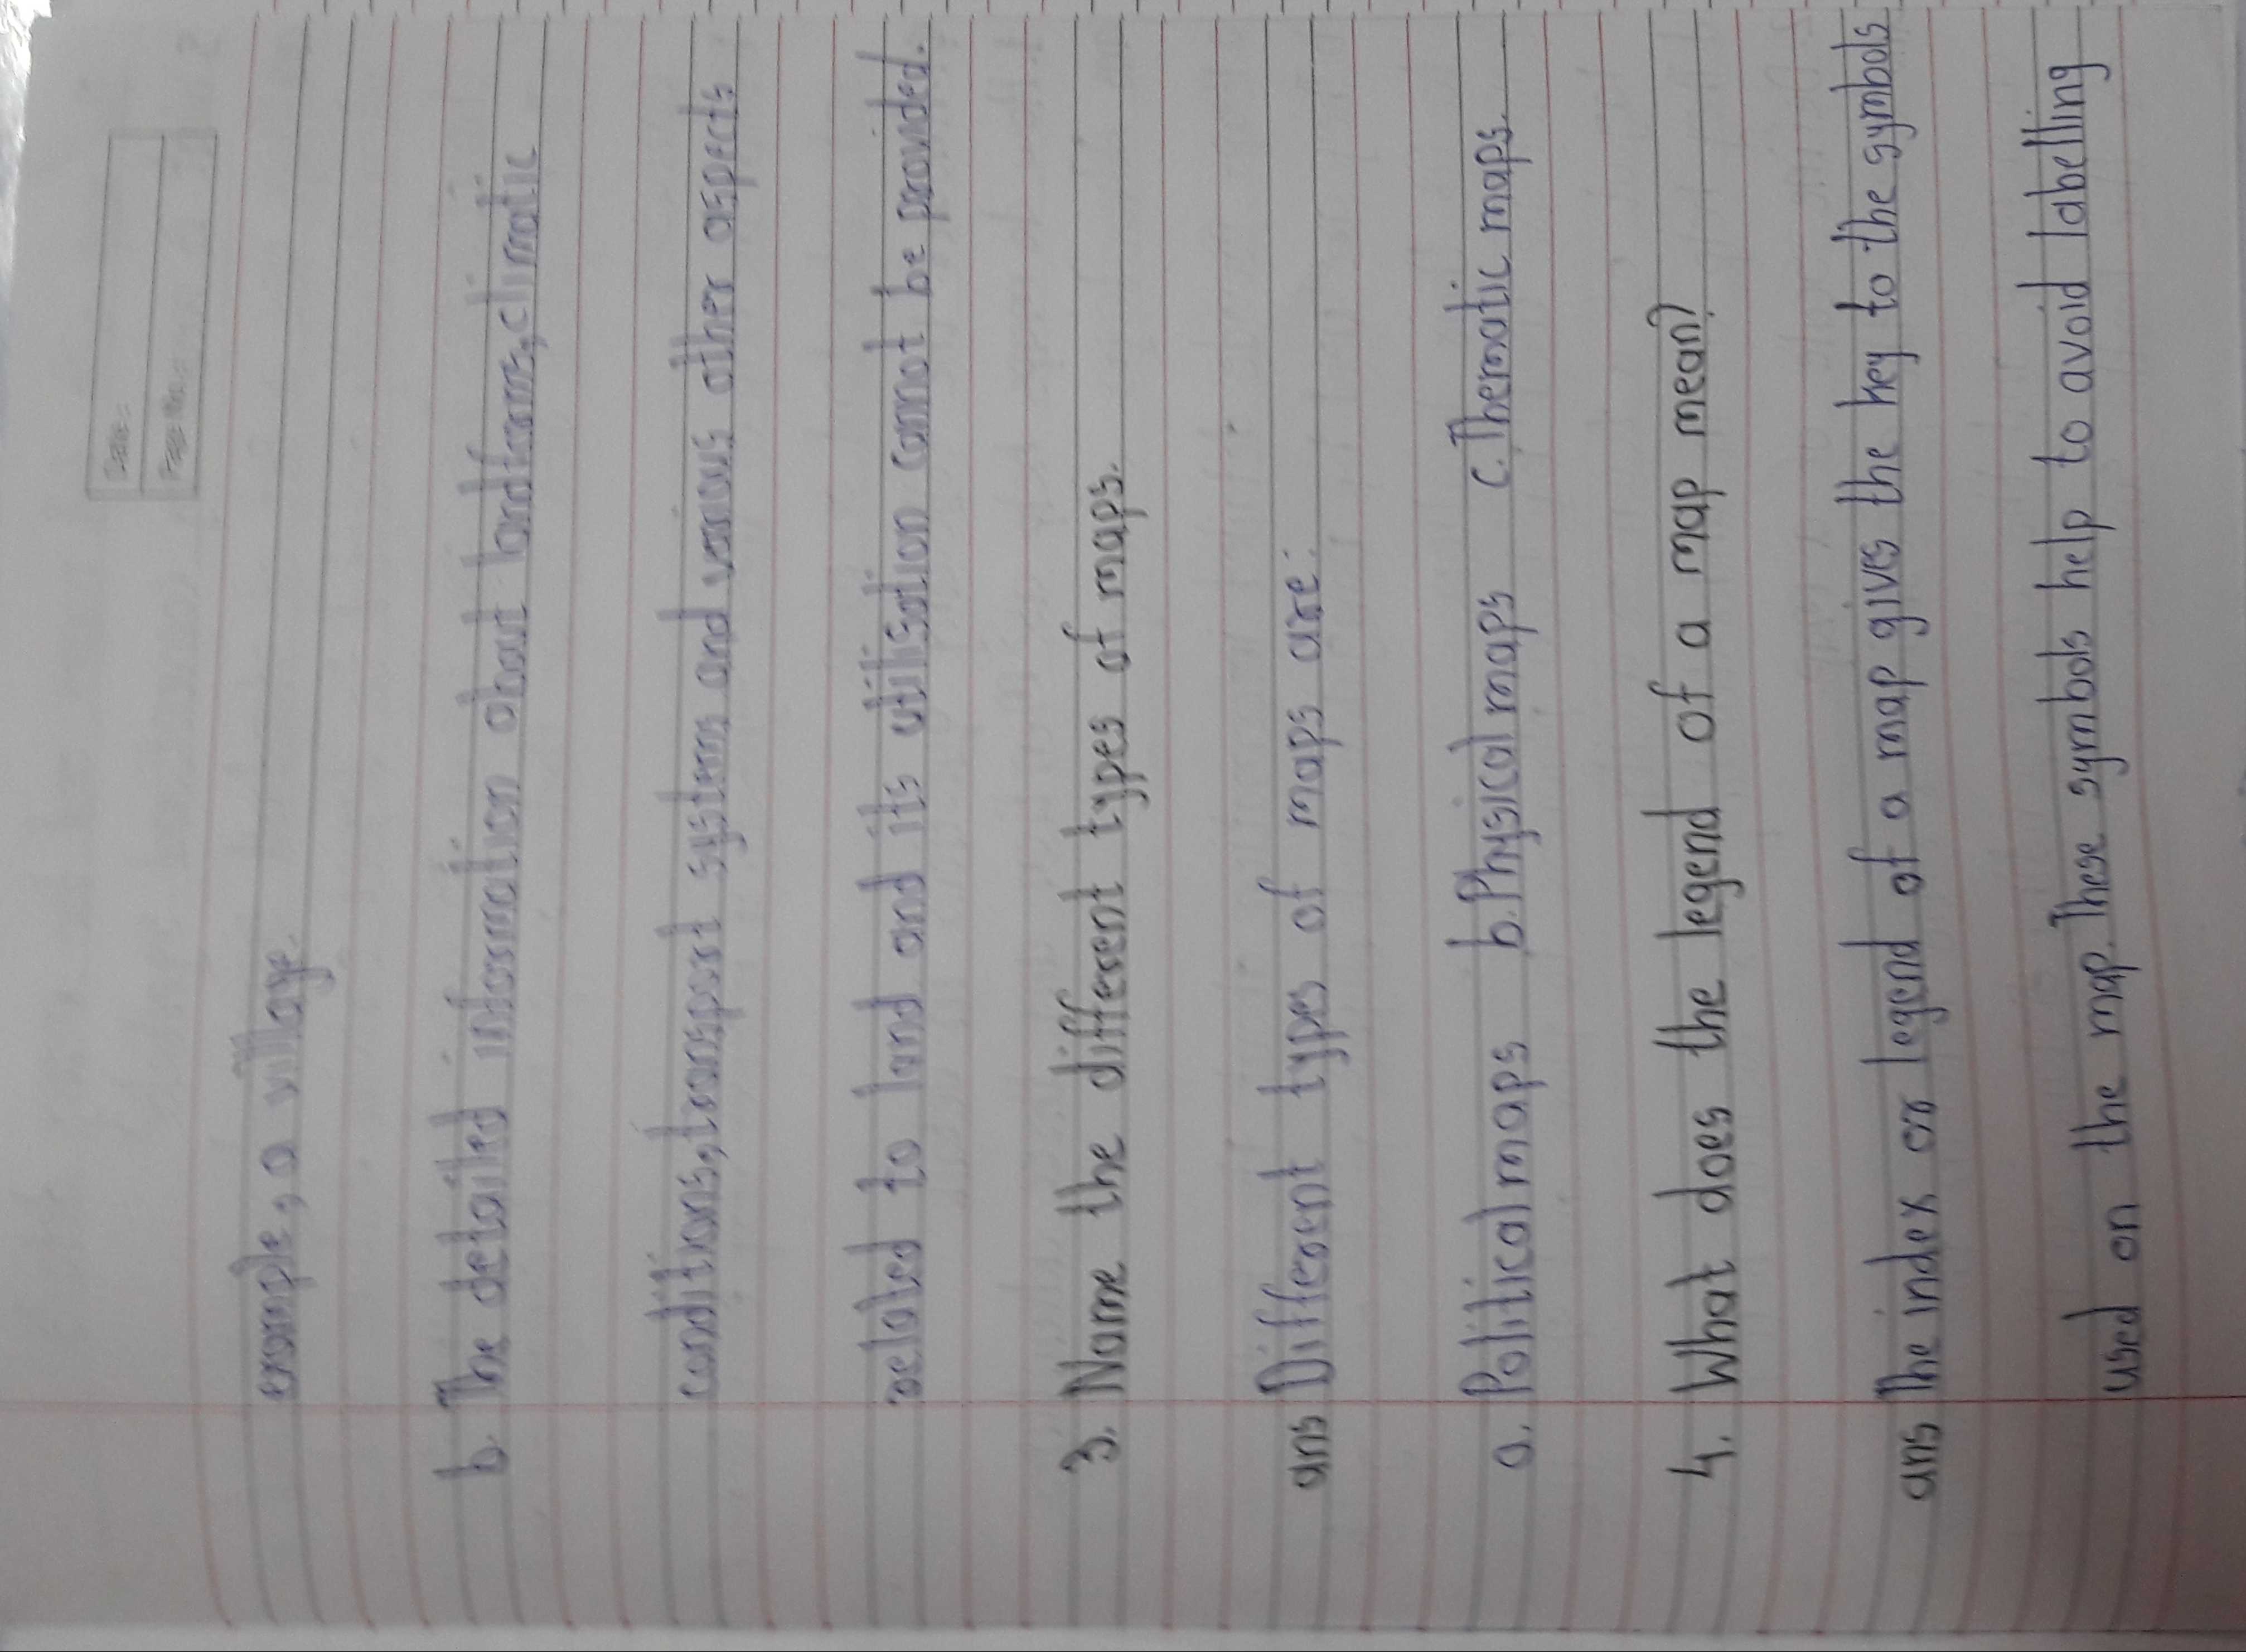 Date:
Page No.:
example, a village.
b. The detailed information about landforms, climatic
conditions, transport systems and various other aspects
related to land and its utilisation cannot be provided.
3. Name the different types of maps.
ans Different types of maps are:
a. Political maps b. Physical maps c. Thematic maps.
4. What does the legend of a map mean?
ans The index or legend of a map gives the key to the symbols
used on the map. These symbols help to avoid labelling